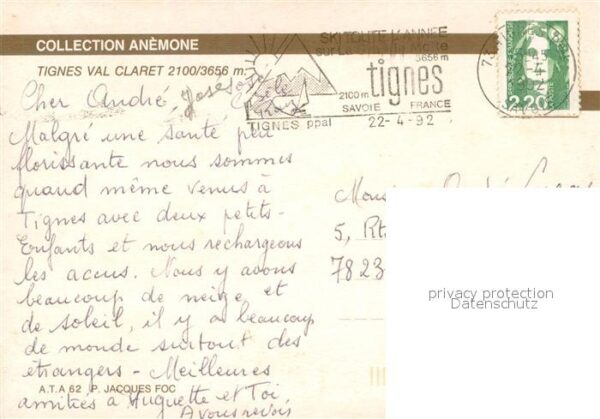 COLLECTION ANÈMONE
TIGNES VAL CLARET 2100/3656 m.
SKI TOUTE L'ANNEE
SUR LA
3656 m
tignes
2100 m
SAVOIE FRANCE
TIGNES ppal 22-4-92
2.20
Cher André,
Malgré une santé peu
florissante nous sommes
quand même venus à
Tignes avec deux petits-
Enfants et nous rechargeons
les accus. Nous y avons
beaucoup de neige et
de soleil, il y a beaucoup
de monde surtout des
étrangers - Meilleures
amitiés à Huguette et Toi.
A vous revoir
A.T.A 62 P. JACQUES FOC
André
5, Rt
7823
privacy protection
Datenschutz